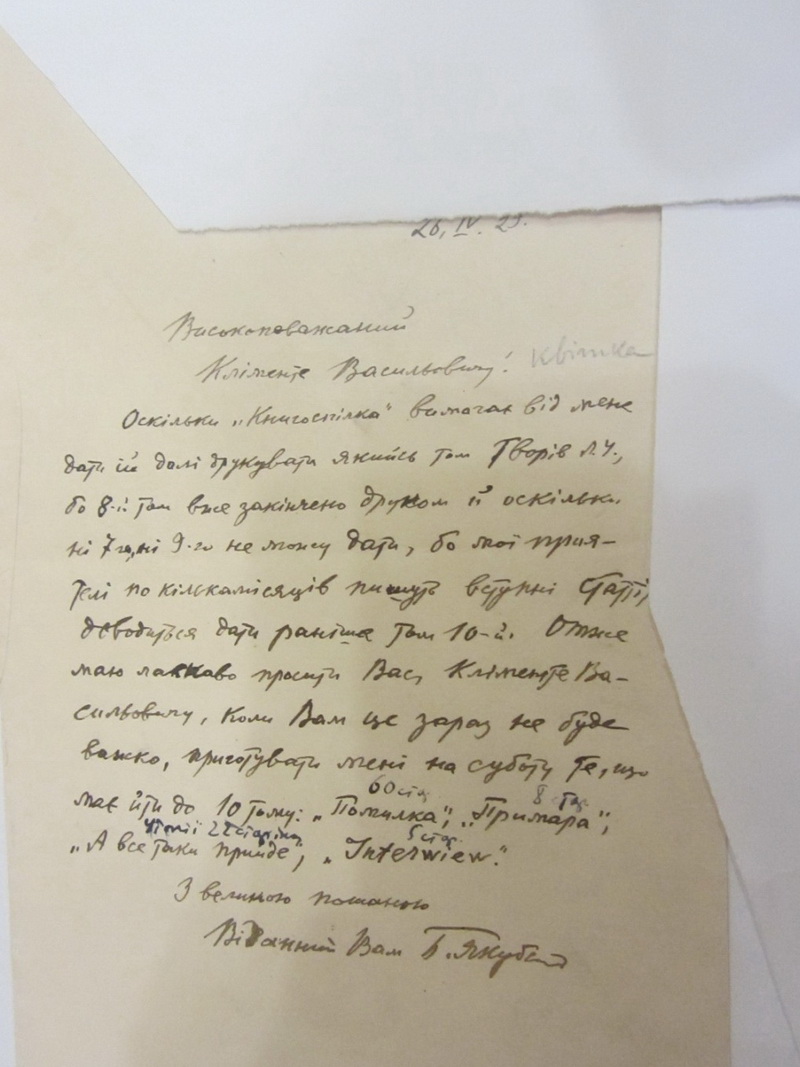 26. IV. 29.
Високоповажаний
Кліменте Васильовичу! Квітка
Оскільки „Книгоспілка" вимагає від мене
дати їй далі друкувати якийсь том Творів Л.У.,
бо 8-й том вже закінчено друком й оскільки
ні 7го, ні 9-го не можу дати, бо мої прия-
телі по кілька місяців пишуть вступні статті,
доводиться дати раніше том 10-й. Отже
маю ласкаво просити Вас, Кліменте Ва-
сильовичу, коли Вам це зараз не буде
важко, приготувати мені на суботу те, що
60 стор. 8 стор.
має йти до 10 тому: „Помилка", „Примара",
утопії 22 сторінки 5 стор.
„А все таки прийде", „Interwiew".
З великою пошаною
Відданий Вам Б. Якубський